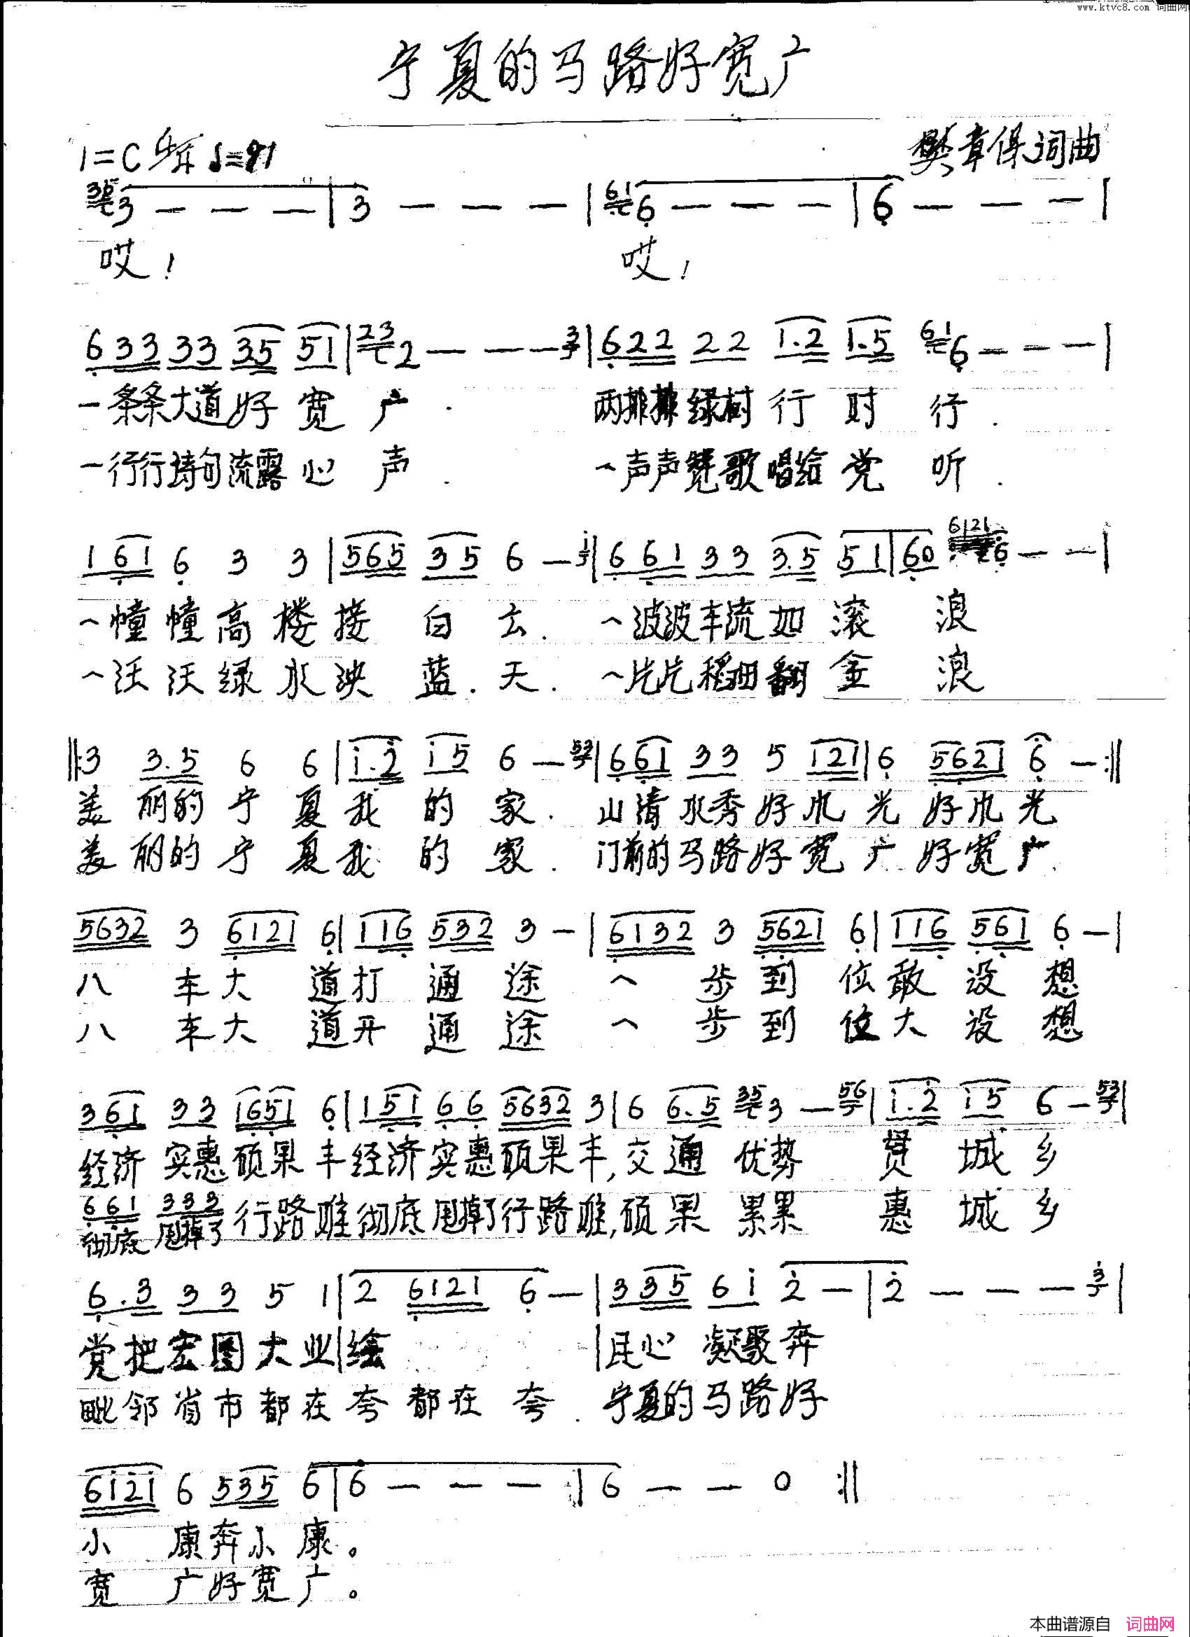 www.ktvc8.com 词曲网
宁夏的马路好宽广
1=C
樊章保词曲
3 - - - | 3 - - - | 6 - - - | 6 - - - |
哎! 哎!
6 3 3 3 3 3 5 5 1 | 2 - - - | 6 2 2 2 2 1.2 1.5 6 - - - |
一条条大道好宽广. 两排排绿树行对行.
一行行诗句流露心声. 一声声赞歌唱给党听.
1 6 1 6 3 3 | 5 6 5 3 5 6 - | 6 6 1 3 3 3.5 5 1 | 6 0 6 - - |
一幢幢高楼接白云. 一波波车流如滚浪
一沃沃绿水泱蓝.天. 一片片稻田翻金浪
‖: 3 3.5 6 6 | 1.2 1 5 6 - | 6 6 1 3 3 5 1 2 1 | 6 5 6 2 1 6 - :‖
美丽的宁夏我的家. 山清水秀好水光好水光
美丽的宁夏我的家. 门前的马路好宽广好宽广.
5 6 3 2 3 6 1 2 1 6 | 1 1 6 5 3 2 3 - | 6 1 3 2 3 5 6 2 1 6 | 1 1 6 5 6 1 6 - |
八车大道打通途 一步到位敢没想
八车大道开通途 一步到位大没想
3 6 1 3 3 1 6 5 1 6 | 1 5 1 6 6 5 6 3 2 3 | 6 6.5 3 - | 1.2 1 5 6 - |
经济实惠硕果丰经济实惠硕果丰,交通优势贤城乡
6 6 1 3 3 3 行路难彻底甩掉了行路难,硕果累累惠城乡
彻底甩掉了
6.3 3 3 5 1 | 2 6 1 2 1 6 - | 3 3 5 6 1 2 - | 2 - - - |
党把宏图大业|绘 |民心凝聚奔
毗邻省市都在夸都在夸. 宁夏的马路好
6 1 2 1 6 5 3 5 6 | 6 - - - | 6 - - 0 :‖
小康奔小康。
宽广好宽广。
本曲谱源自 词曲网